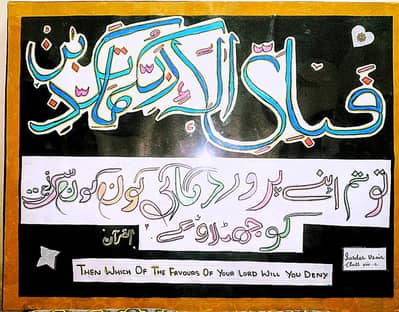 فبای الاء ربکما تکذبن
تو تم اپنے پروردگار کی کون کون سی نعمت
کو جھٹلاؤ گے
القرآن
THEN WHICH OF THE FAVOURS OF YOUR LORD WILL YOU DENY
Sardar
Class